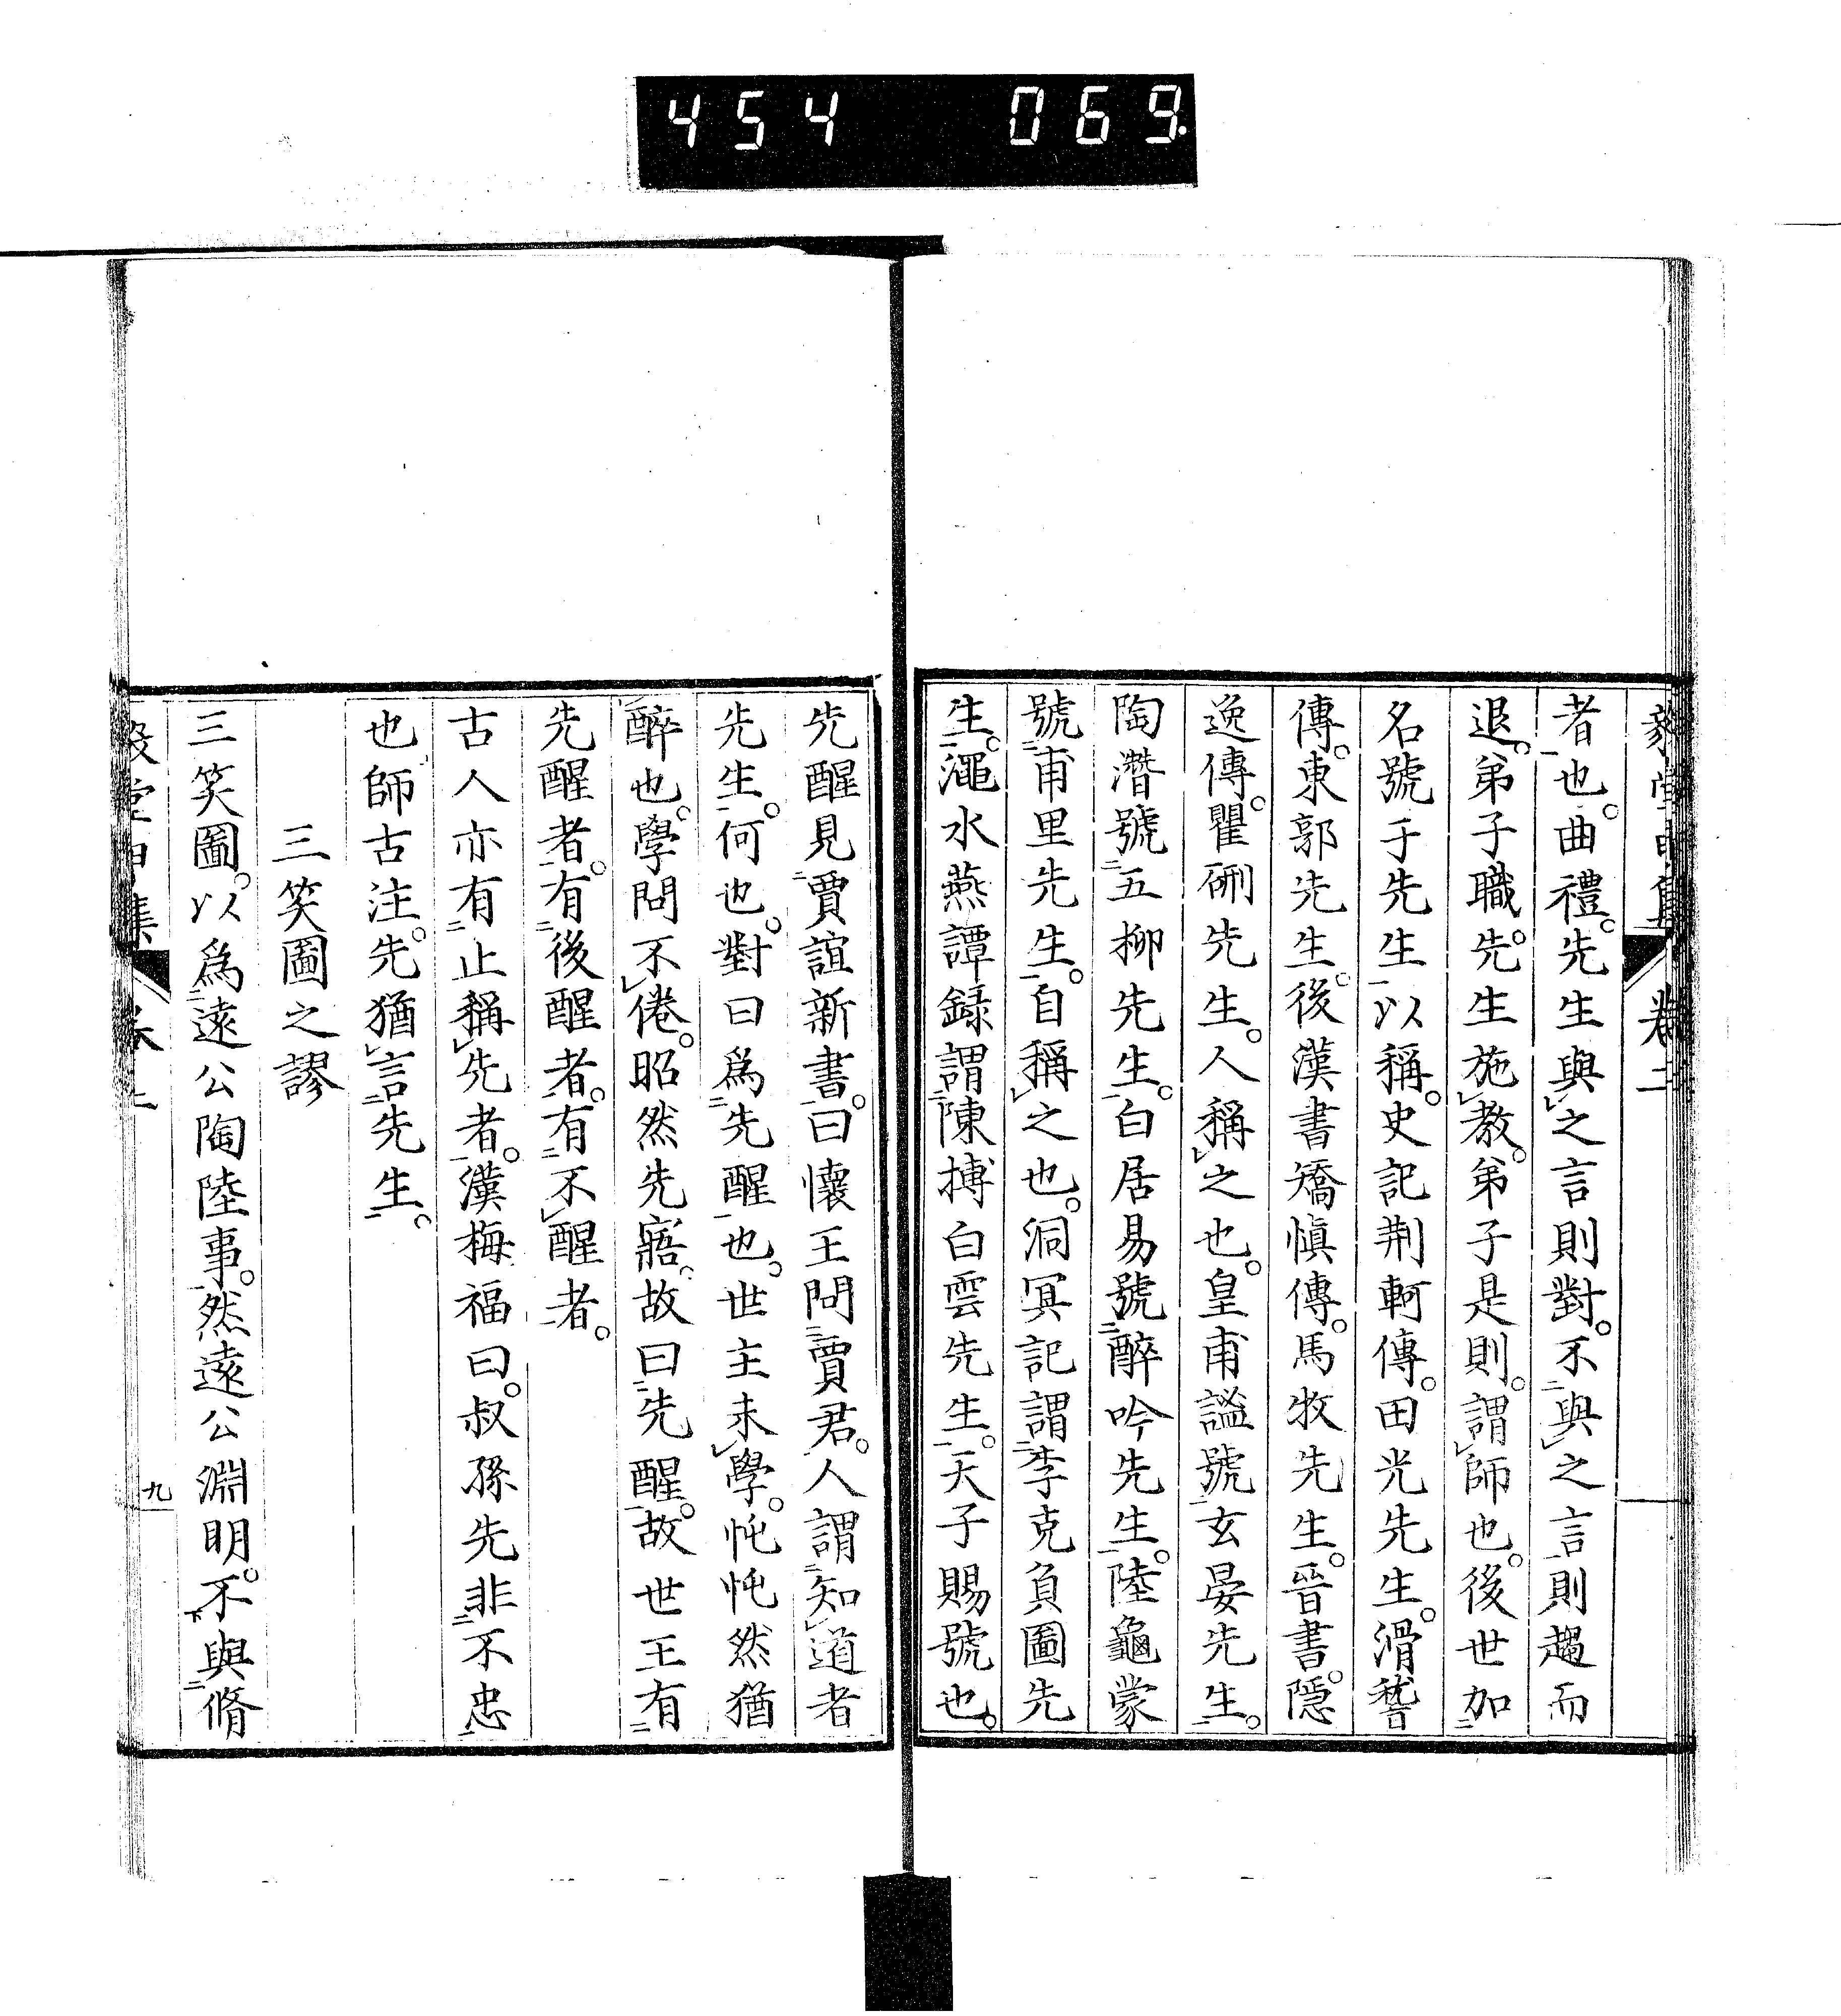 454 069
者也。曲禮。先生與之言則對。不與之言則趨而
退。弟子職。先生施教。弟子是則。謂師也。後世加
名號于先生以稱。史記荆軻傳。田光先生。滑稽
傳。東郭先生。後漢書矯愼傳。馬牧先生。晉書。隱
逸傳。瞿硎先生。人稱之也。皇甫謐號玄晏先生。
陶潛號五柳先生。白居易號醉吟先生。陸龜蒙
號甫里先生。自稱之也。洞冥記謂李克負圖先
生。澠水燕譚録謂陳摶白雲先生。天子賜號也。
先醒見賈誼新書。曰懷王問賈君。人謂知道者
先生。何也。對曰爲先醒也。世主未學。忳忳然猶
醉也。學問不倦。昭然先寤。故曰先醒。故世王有
先醒者。有後醒者。有不醒者。
古人亦有止稱先者。漢梅福曰。叔孫先非不忠
也。師古注。先猶言先生。
三笑圖之謬
三笑圖。以爲遠公陶陸事。然遠公淵明。不與脩
九